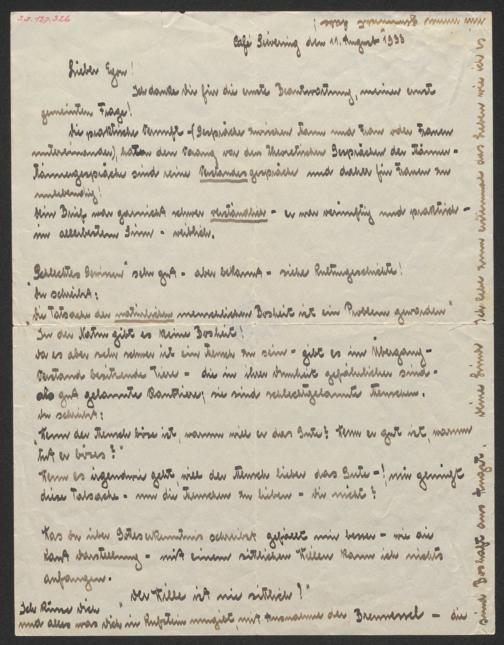 I.N. 127.326
Café Sievering den 11. August 1933
Lieber Egon!
Ich danke Dir für die ernste Beantwortung, meiner ernst
gemeinten Frage!
Die praktische Vernunft - (Gespräche zwischen Mann und Frau oder Frauen
untereinander), haben den Vorang vor den theoretischen Gesprächen der Männer -
Männergespräche sind reine Verstandesgespräche und daher für Frauen zu
unlebendig!
Dein Brief war garnicht schwer verständlich - er war vernünftig und praktisch -
im allerbestem Sinn - weiblich.
"Schlechtes Gewissen" sehr gut - aber bekannt - siehe Kulturgeschichte!
Du schreibst:
"Die Tatsache der natürlichen menschlichen Bosheit ist ein Problem geworden"
In der Natur gibt es keine Bosheit!
Da es aber sehr schwer ist ein Mensch zu sein - gibt es im Übergang -
Verstand besitzende Tiere - die in ihrer Dummheit gefährlicher sind -
als gut gelaunte Raubtiere; sie sind schlechtgelaunte Menschen.
Du schreibst:
"Wenn der Mensch böse ist, warum will er das Gute? Wenn er gut ist, warum
tut er böses?"
Wenn es irgendwie geht, will der Mensch lieber das Gute -! mir genügt
diese Tatsache - um die Menschen zu lieben - Dir nicht?
Was du über Gotteserkenntnis schreibst gefällt mir besser - wie die
Kant Darstellung - mit einem sittlichen Willen kann ich nichts
anfangen.
"Der Wille ist nie sittlich!"
Ich küsse Dich
und alles was dich in Kufstein umgibt, mit Ausnahme der Brennessel - die
sind Boshaft aus Angst. Deine Linda